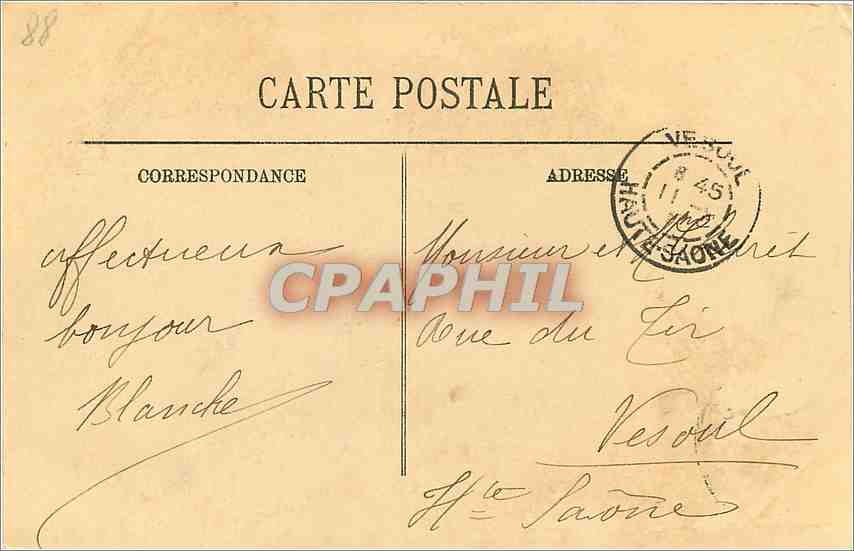 88
CARTE POSTALE
CORRESPONDANCE
ADRESSE
VESOUL
8 45
11
HAUTE-SAONE
affectueux
bonjour
Blanche
Monsieur et Mme
Rue du Tir
Vesoul
Hte Saône
CPAPHIL